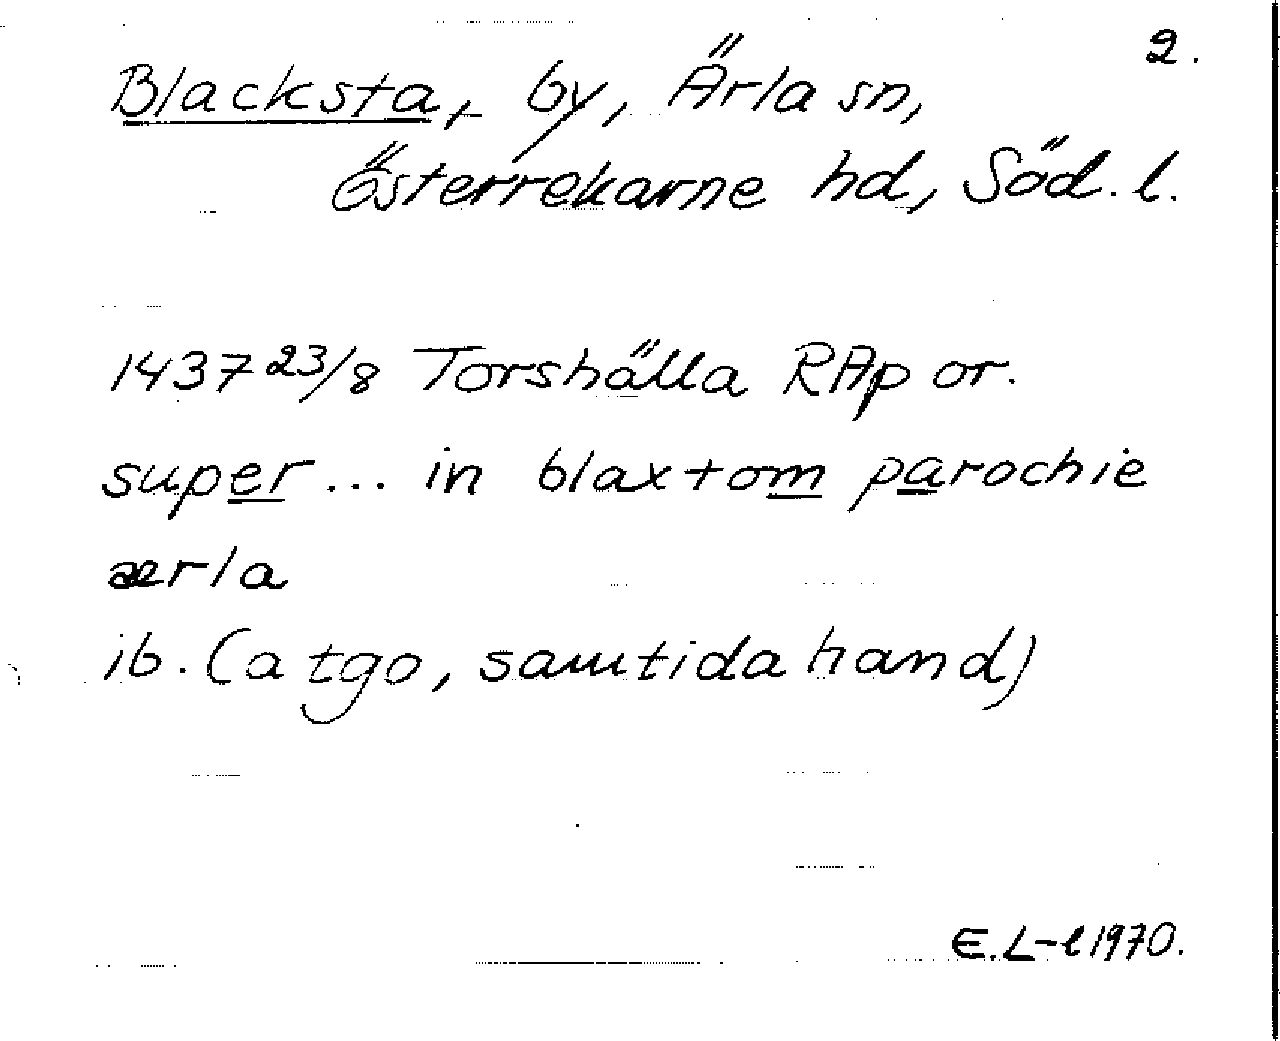 2.
Blacksta, by, Ärla sn,
Österrekarne hd, Söd. l.
1437 23/8 Torshälla RAp or.
super ... in blaxtom parochie
ærla
ib. (a tgo, samtida hand)
E.L-l 1970.